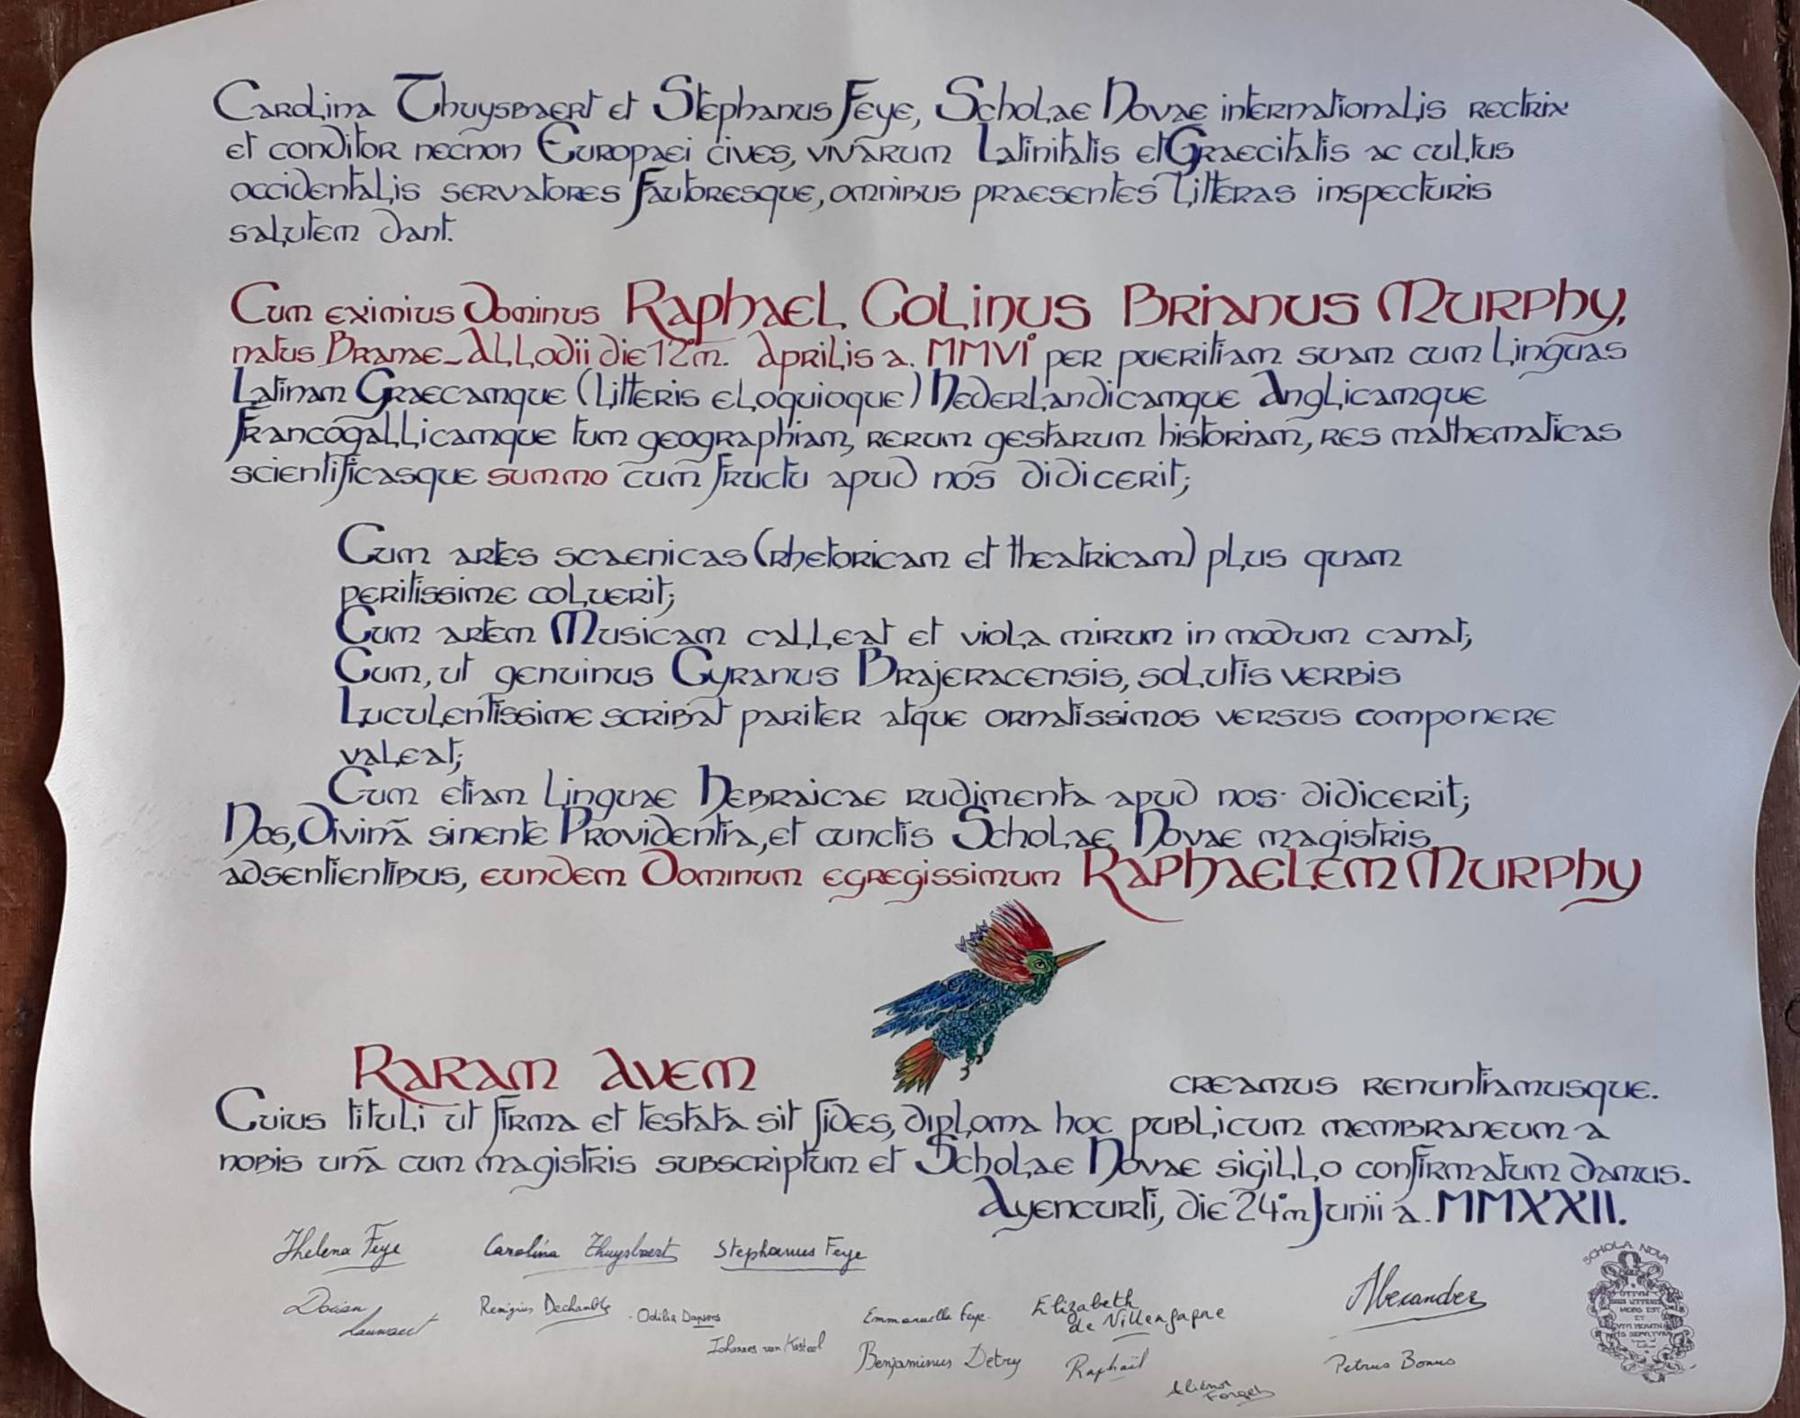 Carolina Thuysbaert et Stephanus Feye, Scholae Novae internationalis rectrix
et conditor necnon Europaei cives, vivarum Latinitatis et Graecitatis ac cultus
occidentalis servatores fautoresque, omnibus praesentes litteras inspecturis
salutem dant.
Cum eximius Dominus Raphael Colinus Brianus Murphy,
natus Branae-Allodii die 12m. Aprilis a. MMVI° per pueritiam suam cum linguas
Latinam Graecamque (litteris eloquioque) Nederlandicamque Anglicamque
Francogallicamque tum geographiam, rerum gestarum historiam, res mathematicas
scientificasque summo cum fructu apud nos didicerit;
Cum artes scaenicas (rhetoricam et theatricam) plus quam
peritissime coluerit;
Cum artem Musicam calleat et viola mirum in modum canat;
Cum, ut genuinus Cyranus Brajeracensis, solutis verbis
luculentissime scribat pariter atque ornatissimos versus componere
valeat;
Cum etiam linguae Hebraicae rudimenta apud nos didicerit;
Nos, Divinā sinente Providentia, et cunctis Scholae Novae magistris
adsentientibus, eundem Dominum egregissimum Raphaelem Murphy
Raram avem creamus renuntiamusque.
Cuius tituli ut firma et testata sit fides, diploma hoc publicum membraneum a
nobis unā cum magistris subscriptum et Scholae Novae sigillo confirmatum damus.
Ayencurti, die 24°m Junii a. MMXXII.
Thelena Feye Carolina Thuysbaert Stephanus Feye
Dorian Remigius Dechamble Odilia Emmanuella Feye Elizabeth de Villengagne Alexander
Johannes van Kasteel Benjaminus Detry Raphaël Petrus Bonus
SCHOLA NOVA